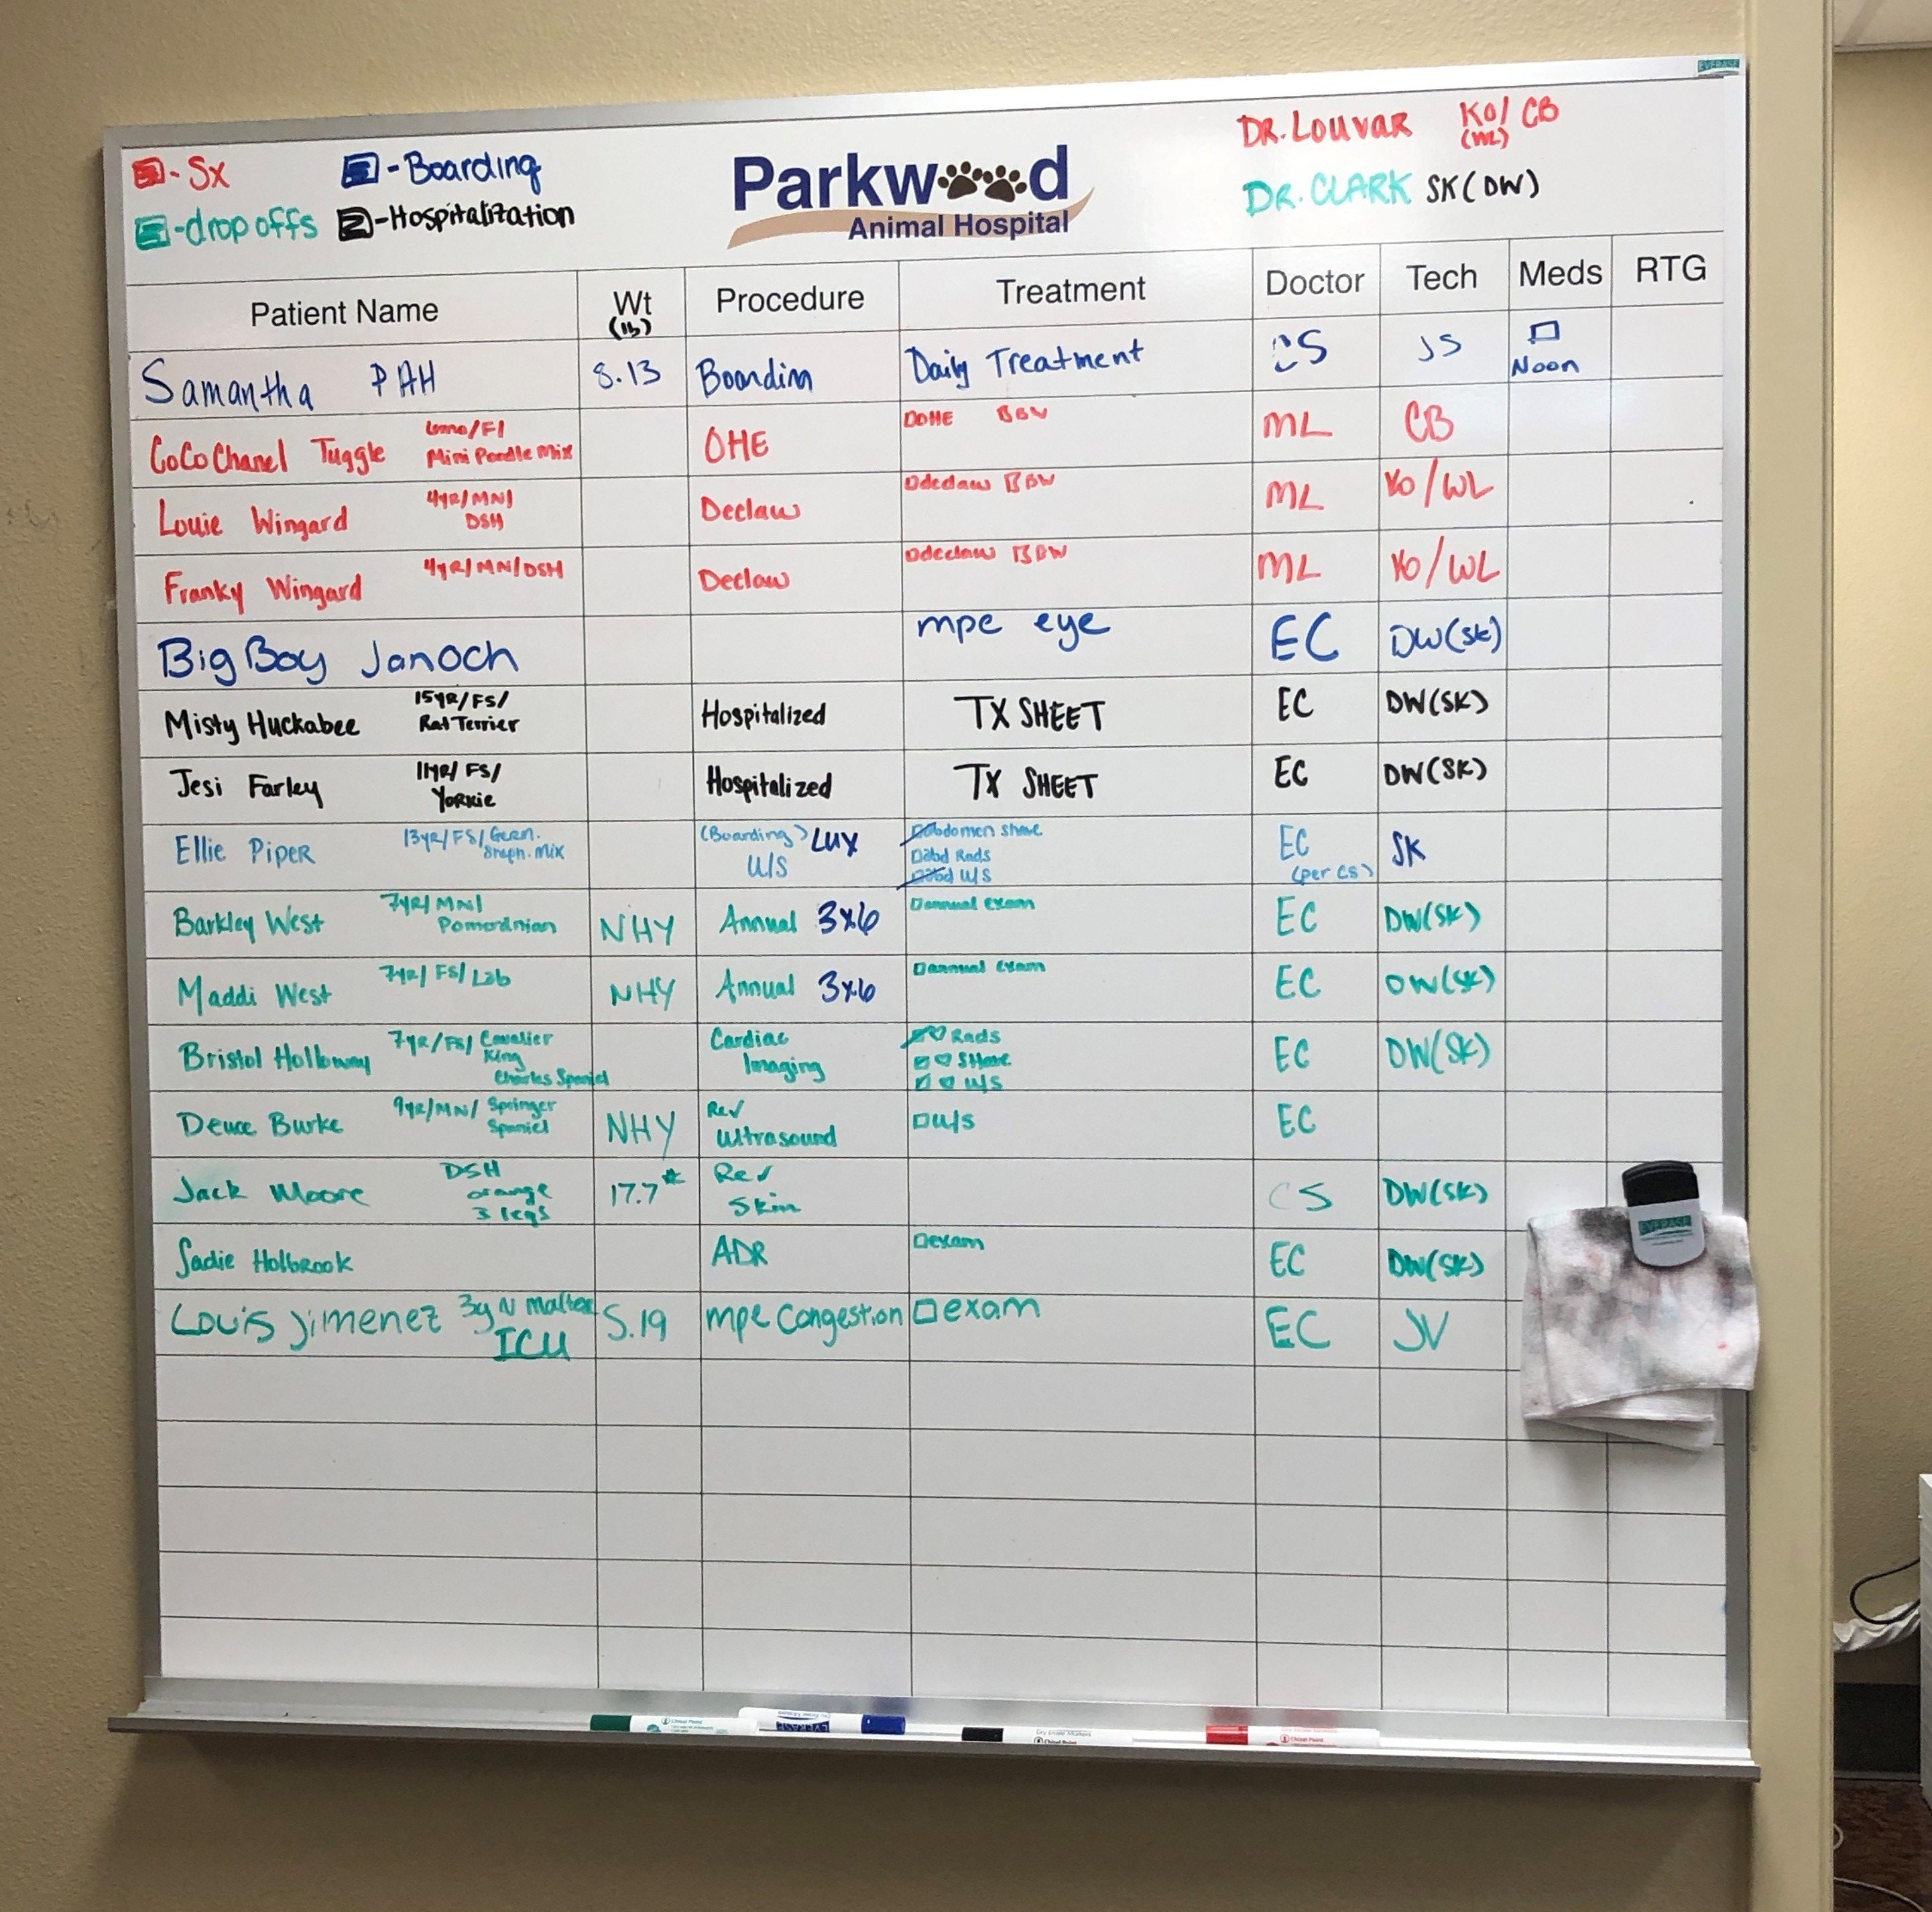 EVERASE
Sx
- Boarding
Parkwood
Animal Hospital
DR. Louvar KO/ CB
(WL)
- drop offs
- Hospitalization
DR. CLARK SK (DW)
Patient Name Wt Procedure Treatment Doctor Tech Meds RTG
(lb)
Samantha PAH 8.13 Boardin Daily Treatment CS JS
Noon
CoCo Chanel Tuggle 6mo/F/ OHE OHE BBW ML CB
Mini Poodle Mix
Louie Wingard 4yR/MN/ Declaw declaw BBW ML KO/WL
DSH
Franky Wingard 4yR/MN/DSH Declaw declaw BBW ML KO/WL
Big Boy Janoch mpe eye EC DW(SK)
Misty Huckabee 15yR/FS/ Hospitalized TX SHEET EC DW(SK)
Rat Terrier
Jesi Farley 11yR/FS/ Hospitalized TX SHEET EC DW(SK)
Yorkie
Ellie Piper 13yR/FS/Germ. (Boarding) Lux abdomen shave EC SK
Sheph. Mix U/S abd Rads (per CS)
abd U/S
Barkley West 7yR/MN/ NHY Annual 3x6 annual exam EC DW(SK)
Pomeranian
Maddi West 7yR/FS/Lab NHY Annual 3x6 annual exam EC DW(SK)
Bristol Holloway 7yR/FS/ Cavalier Cardiac Rads EC DW(SK)
King Imaging Shave
Charles Spaniel U/S
Deuce Burke 9yR/MN/ Springer NHY Rev u/s EC
Spaniel Ultrasound
Jack Moore DSH 17.7# Rev CS DW(SK)
orange Skin
3 legs
Sadie Holbrook ADR exam EC DW(SK)
Louis Jimenez 3y N maltes 5.19 mpe Congestion exam EC JV
ICU
EVERASE
EVERASE